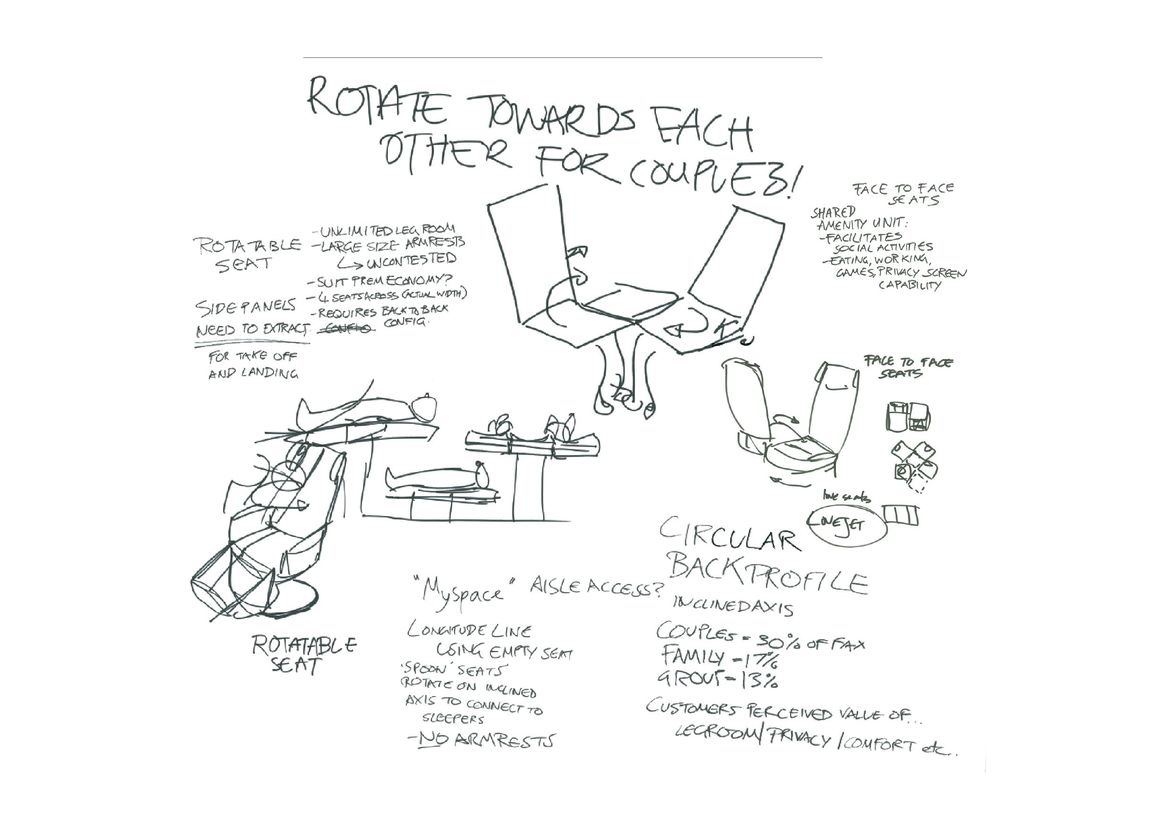 ROTATE TOWARDS EACH
OTHER FOR COUPLES!
ROTATABLE
SEAT
- UNLIMITED LEG ROOM
- LARGE SIZE ARMRESTS
↳ UNCONTESTED
- SUIT PREM ECONOMY?
- 4 SEATS ACROSS (ACTUAL WIDTH)
- REQUIRES BACK TO BACK
CONFIG.
SIDE PANELS
NEED TO EXTRACT
FOR TAKE OFF
AND LANDING
FACE TO FACE
SEATS
SHARED
AMENITY UNIT:
- FACILITATES
SOCIAL ACTIVITIES
- EATING, WORKING,
GAMES, PRIVACY SCREEN
CAPABILITY
FACE TO FACE
SEATS
love seats
LOVEJET
ROTATABLE
SEAT
"Myspace" AISLE ACCESS?
LONGITUDE LINE
USING EMPTY SEAT
'SPOON' SEATS
ROTATE ON INCLINED
AXIS TO CONNECT TO
SLEEPERS
- NO ARMRESTS
CIRCULAR
BACK PROFILE
INCLINED AXIS
COUPLES = 30% OF PAX
FAMILY - 17%
GROUP - 13%
CUSTOMERS PERCEIVED VALUE OF...
LEGROOM/PRIVACY/COMFORT etc..